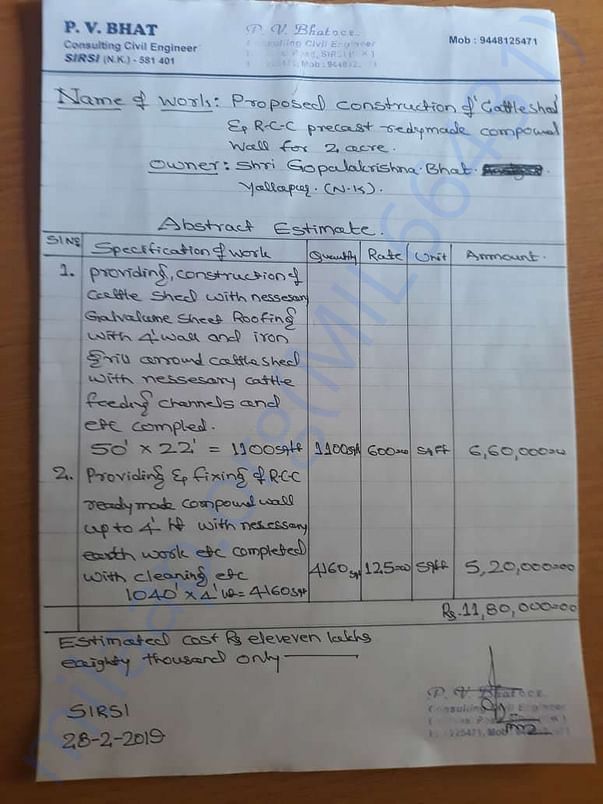 P. V. BHAT
Consulting Civil Engineer
SIRSI (N.K.) - 581 401
P. V. Bhat
Consulting Civil Engineer
Mob : 9448125471
Name of work: Proposed construction of Cattleshed
& R-C-C precast redymade compound
wall for 2 acre.
Owner: Shri Gopalakrishna Bhat
Yallapur. (N-K).
Abstract Estimate.
Sl No Specification of work Quantity Rate Unit Ammount.
1. providing, construction of
cattle shed with nessesary
Galvalume sheet Roofing
with 4' wall and iron
grill arround cattleshed
with nessesary cattle
feeding channels and
etc compled.
50' x 22' = 1100 sqft 1100 sqft 600=00 sqft 6,60,000=00
2. Providing & fixing of R-C-C
readymade compound wall
up to 4' ht with nessary
earth work etc completed
with cleaning etc 4160 sqft 125=00 sqft 5,20,000=00
1040' x 4' ht = 4160 sqft
Rs. 11,80,000=00
Estimated cost Rs eleveven lakhs
eaighty thousand only
SIRSI
28-2-2019
P. V. Bhat
Consulting Civil Engineer